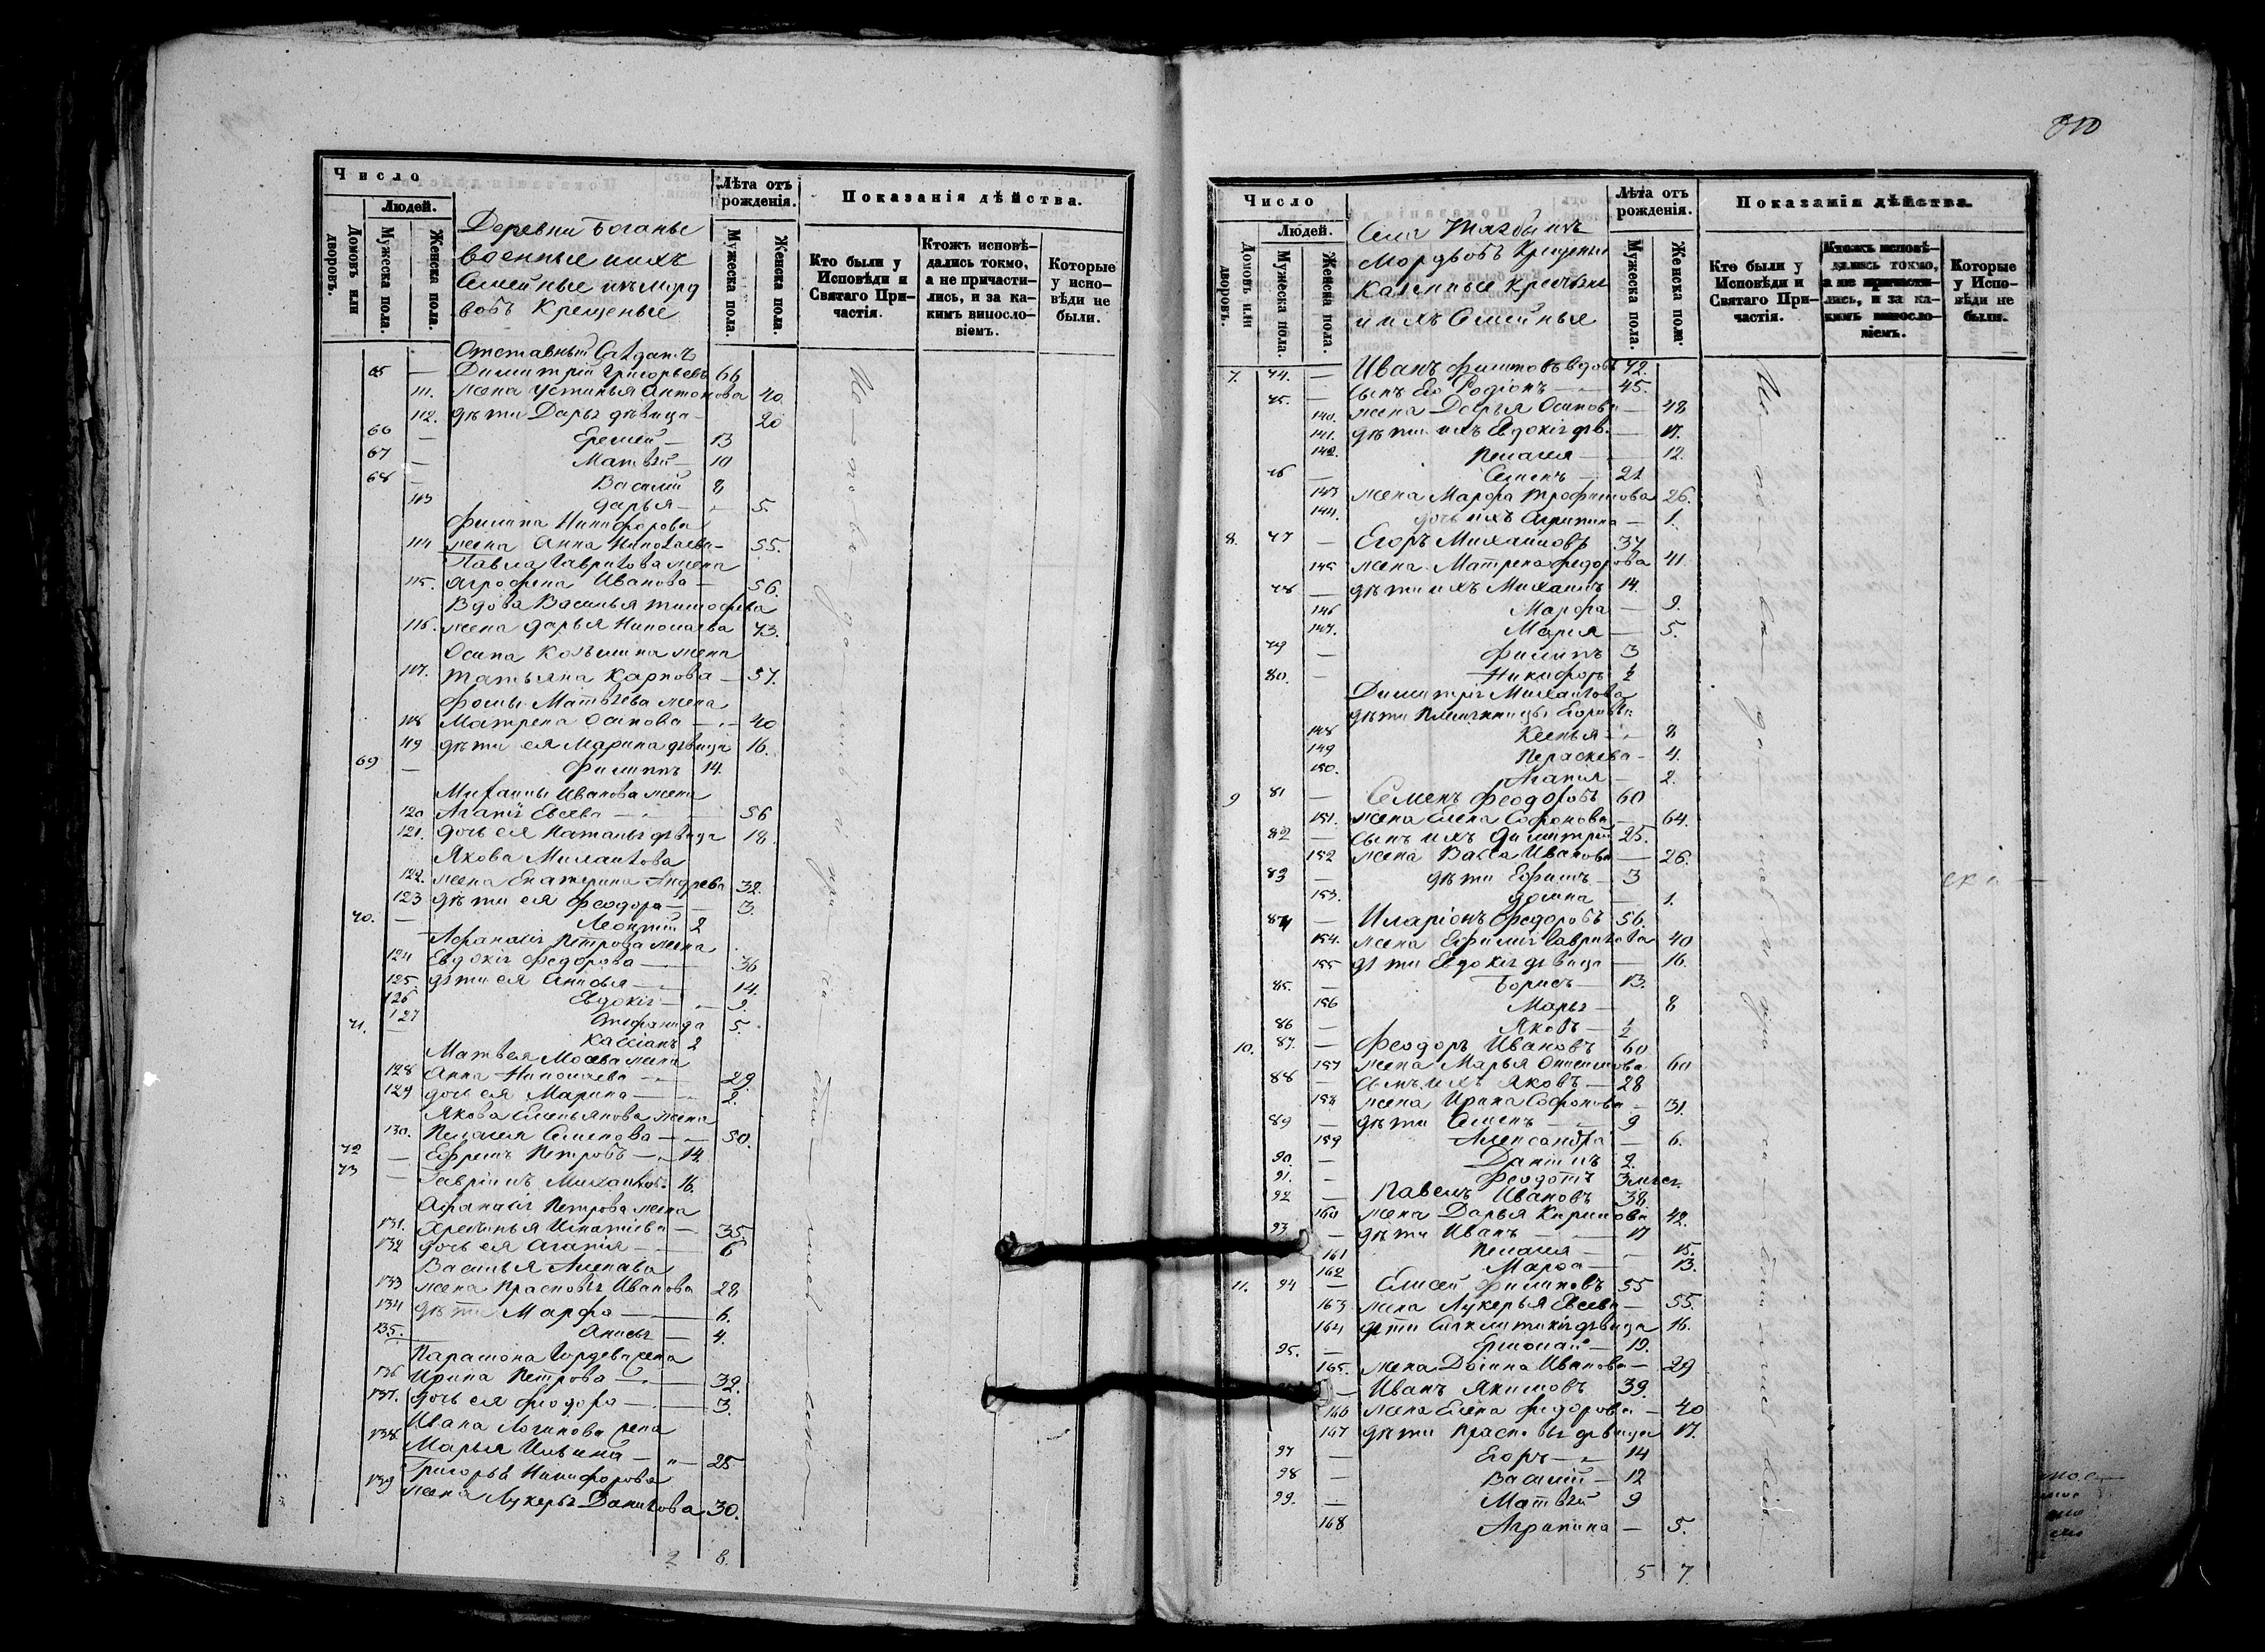 Число
Людей.
Домовъ или дворовъ.
Мужеска пола.
Женска пола.
Деревни
военные ихъ
Семейные изъ морд
вовъ Крещеные
Лѣта отъ рожденія.
Мужеска пола.
Женска пола.
Показанія дѣйства.
Кто были у Исповѣди и Святаго При-
частія.
Ктожъ исповѣ-
дались токмо,
а не причасти-
лись, и за ка-
кимъ виносло-
віемъ.
Которые
у испо-
вѣди не
были.
Отставный Салдатъ
65 — Димитрій Григорьевъ 66
111. жена Устинья Антонова 40
112. дѣти Дарья дѣвица — 20
66 — Еремей — 13
67 — Матвѣй — 10
68 — Василій 8
113 Дарья — 5.
Филипа Никифорова
114 жена Анна Николаева — 55.
Павла Гаврилова жена
115. Агрофена Иванова — 56.
Вдова Василья Тимофева
116. жена Дарья Николаева 73.
Осипа Козьмина жена
117. Татьяна Карпова — 57.
Фомы Матвѣева жена
118 Матрена Осипова — 40
119 дѣти ея Марина дѣвица 16.
69 — Филиппъ 14.
Михаилы Иванова жена
120 Агапія Евсева — 56
121. дочь ея Наталья дѣвица 18.
Якова Михаилова
122. жена Екатерина Андрева 32.
123 дѣти ея Феодора — 3.
70. — Леонтій 2
Афанасія Петрова жена
124 Евдокія Федорова — 36
125. дѣти ея Анисья — 14.
126 Евдокія — 9.
127 Стефанида 5.
71. — Кассіанъ 2
Матвея Мосева жена
128 Анна Николаева — 29.
129 дочь ея Марина — 2.
Якова Емельянова жена
130. Пелагея Семенова — 50.
72 — Ефремъ Петровъ — 14.
73 — Гавріилъ Михаиловъ 16.
Афанасія Петрова жена
131. Игнатіева — 35.
132 дочь ея Агапія — 6
Василья
133 жена Прасковья Иванова 28
134 дѣти Марфа — 6.
135. Анисья — 4.
Парамона Гордева жена
136 Ирина Петрова — 32.
137. дочь ея Феодора — 3.
Ивана Логинова жена
138. Марья Ильина — 25
Григорья Никифорова
139 жена Лукерья Данилова 30.
2 8.
810
Число
Людей.
Домовъ или дворовъ.
Мужеска пола.
Женска пола.
Села
Мордвовъ Крещеныхъ
Казенные Кресьяне
и ихъ Семейные
Лѣта отъ рожденія.
Мужеска пола.
Женска пола.
Показанія дѣйства.
Кто были у Исповѣди и Святаго При-
частія.
Ктожъ исповѣ-
дались токмо,
а не причасти-
лись, и за ка-
кимъ виносло-
віемъ.
Которые
у Испо-
вѣди не
были.
7. 74. — Иванъ Филиповъ вдовъ 72.
75. — Сынъ его Родіонъ — 45.
140. жена Дарья Осипова — 48
141. дѣти ихъ Евдокія дѣв. — 17.
142. Пелагея — 12.
76 — Семенъ — 21
143 жена Марфа Трофимова 26.
144. дочь ихъ Агрипина — 1.
8. 77 — Егоръ Михайловъ 37
145 жена Матрена Федорова 41
78 — дѣти ихъ Михаилъ 14.
146 Марфа — 9.
147. Марея — 5.
79 — Филипъ 3
80. — Никифоръ ½
Димитрія Михаилова
дѣти
148 Ксенья — 8
149 Пераскева — 4.
150. Агапия — 2.
9 81 — Семенъ Феодоровъ 60
151. жена Елена Софонова 64.
82 — Сынъ ихъ Димитрій 25.
152 жена Васса Иванова — 26.
83 — дѣти Ефимъ — 3
153. Домна — 1.
84 — Иларіонъ Феодоровъ 56.
154. жена Ефимія Гаврилова 40
155 дѣти Евдокія дѣвица — 16.
85. — Борисъ — 13.
156 Марья — 8
86 — Яковъ — ½
10. 87. — Феодоръ Ивановъ 60
157 жена Марья Онисимова 60
88 — Сынъ ихъ Яковъ — 28
158 жена Ирина Софонова — 31.
89 — дѣти Семенъ — 9
159 Александра — 6.
90. — Даниилъ 2.
91. — Феодотъ 3 мѣсец.
92 — Павелъ Ивановъ 38,
160 жена Дарья Кирилова 42.
93 — дѣти Иванъ — 17
161 Пелагея — 15.
162 Марфа — 13.
11. 94 — Елисей Филиповъ 55
163 жена Лукерья Евсева — 55.
164 дѣти дѣвица 16.
95. — Ермолай — 19.
165. жена Домна Иванова — 29
— Иванъ Якимовъ 39.
166 жена Елена Федорова — 40
167 дѣти Прасковья дѣвица 17.
97 — Егоръ — 14
98 — Василій — 12
99. — Матвѣй 9
168 Агрипина — 5.
5 7.